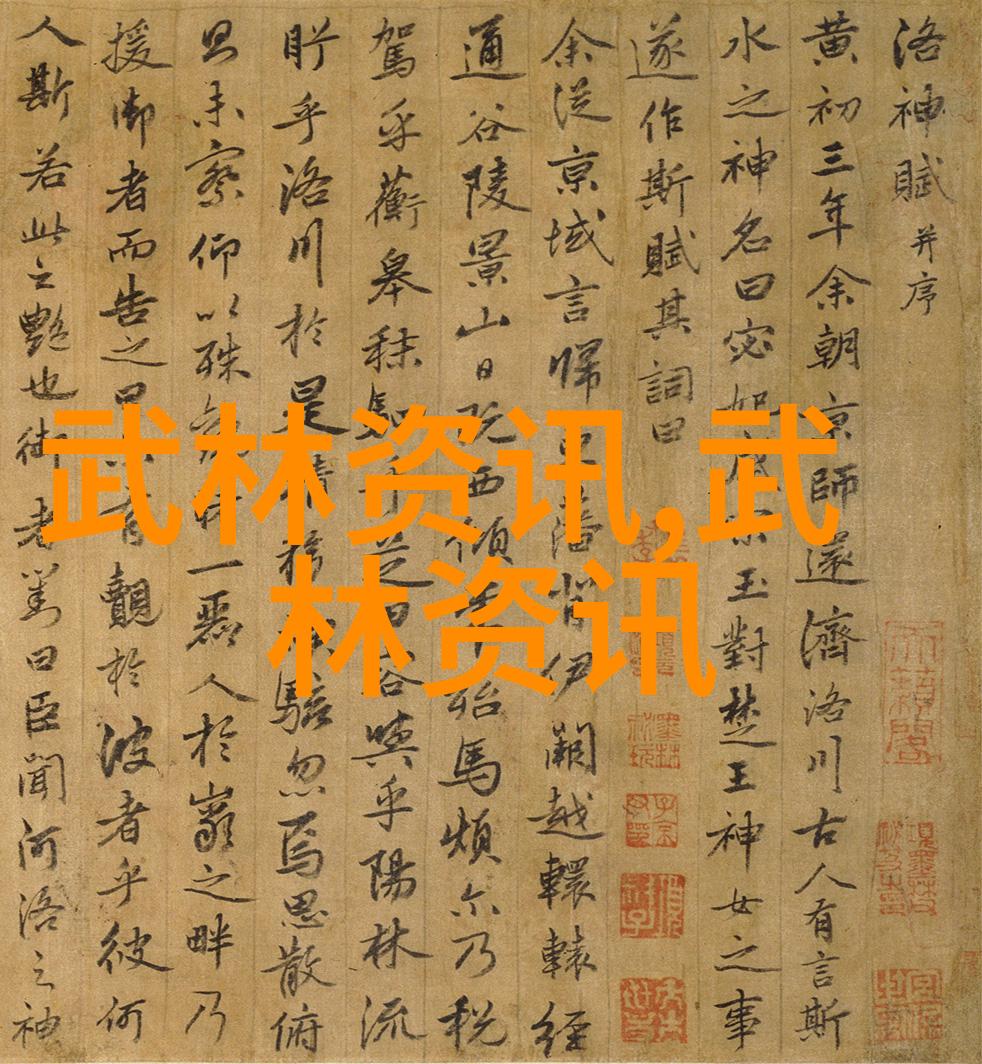 洛神賦并序
黄初三年余朝京師還濟洛川古人有言斯
水之神名曰宓妃感宋玉對楚王神女之事
遂作斯賦其詞曰
余從京域言歸東藩背伊闕越轘轅經
通谷陵景山日既西傾車殆馬煩尒乃税
駕乎蘅皋秣駟乎芝田容與乎陽林流
眄乎洛川於是精移神駭忽焉思散俯
則未察仰以殊觀一麗人於巖之畔乃
援御者而告之曰有覿於彼者乎彼何
人斯若此之艷也御者對曰臣聞河洛之神
武林资讯,武
林资讯